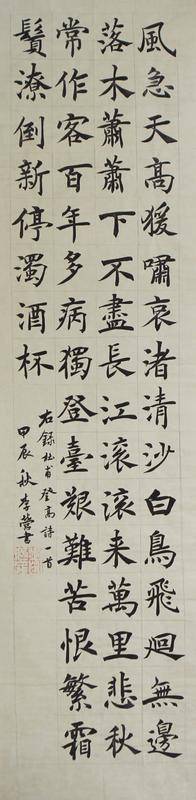 風急天高猨嘯哀渚清沙白鳥飛迴無邊
落木蕭蕭下不盡長江滾滾来萬里悲秋
常作客百年多病獨登臺艱難苦恨繁霜
鬢潦倒新停濁酒杯
右錄杜甫登高詩一首
甲辰秋李營書